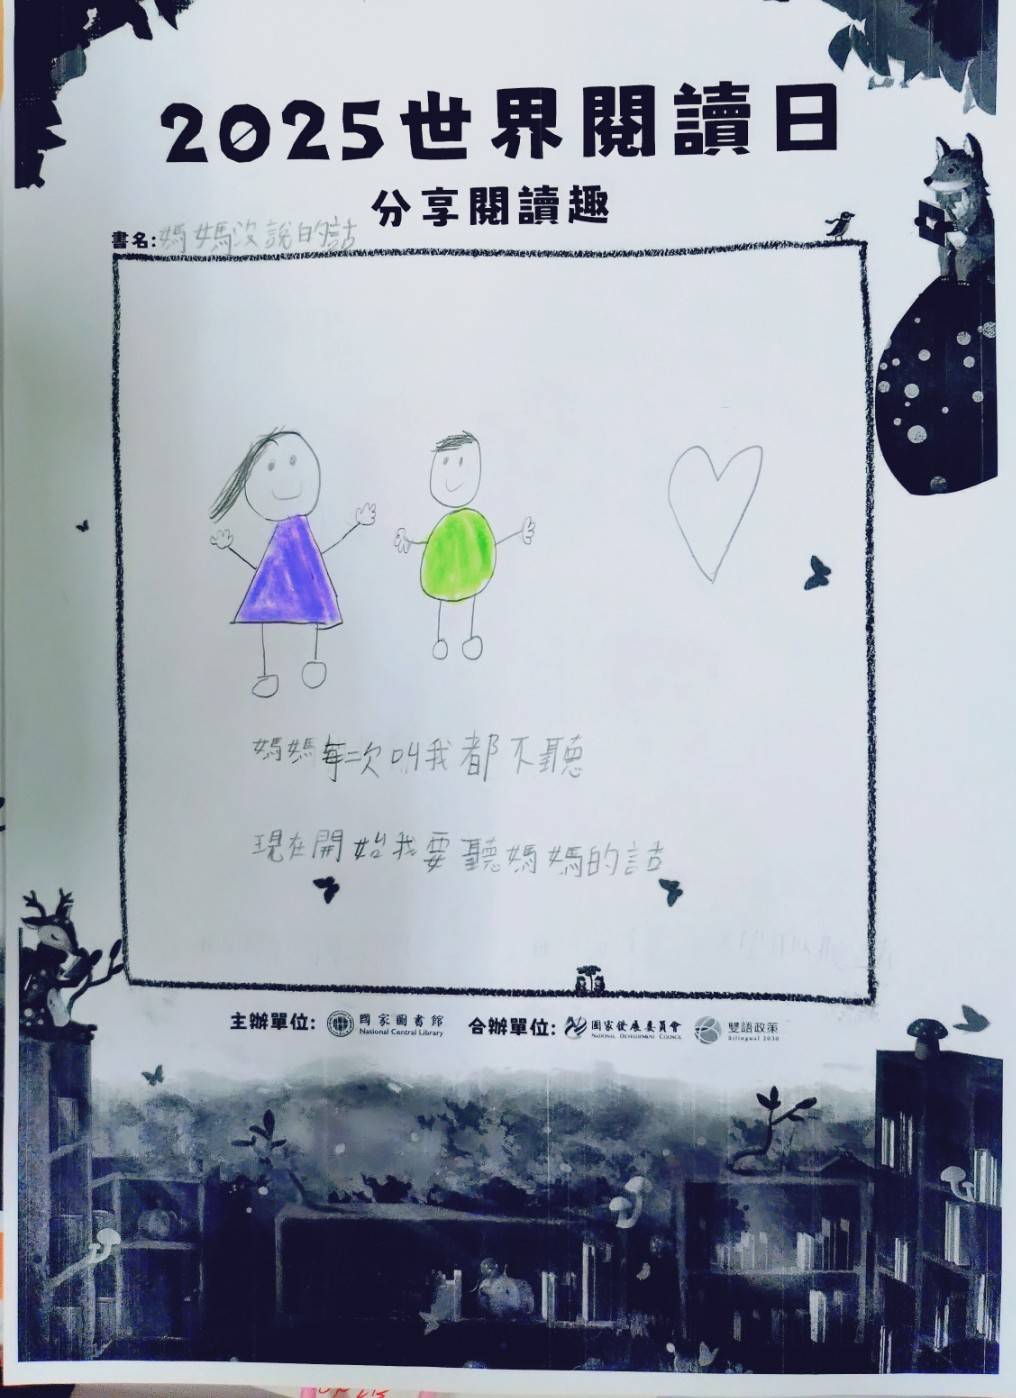 2025世界閱讀日
分享閱讀趣
書名:媽媽沒說的話
媽媽每次叫我都不聽
現在開始我要聽媽媽的話
主辦單位: 國家圖書館 National Central Library 合辦單位: 國家發展委員會 National Development Council 雙語政策 Bilingual 2030